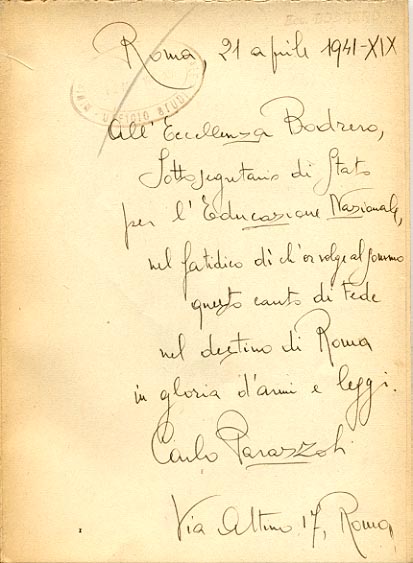 Ecc. BODRERO
UFFICIO STUDI
Roma, 21 aprile 1941-XIX
All'Eccellenza Bodrero,
Sottosegretario di Stato
per l'Educazione Nazionale,
nel fatidico dì ch'or volge al sommo
questo canto di Fede
nel destino di Roma
in gloria d'armi e leggi.
Carlo Parazzoli
Via Altino 17, Roma